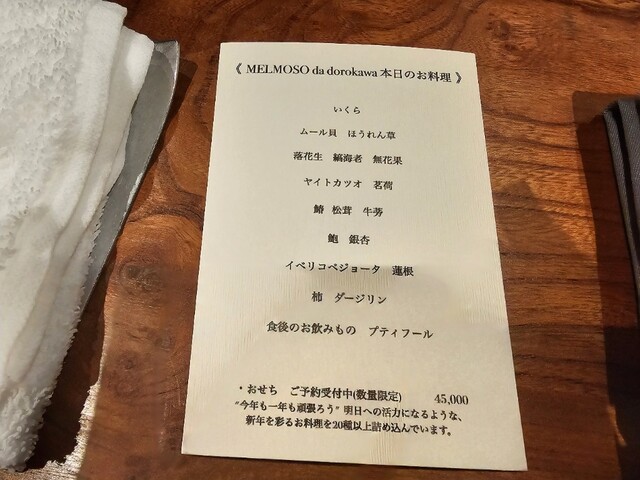 《 MELMOSO da dorokawa 本日のお料理 》
いくら
ムール貝　ほうれん草
落花生　縞海老　無花果
ヤイトカツオ　茗荷
鰆　松茸　牛蒡
鮑　銀杏
イベリコベジョータ　蓮根
柿　ダージリン
食後のお飲みもの　プティフール
・おせち　ご予約受付中(数量限定)　45,000
"今年も一年も頑張ろう" 明日への活力になるような、
新年を彩るお料理を20種以上詰め込んでいます。